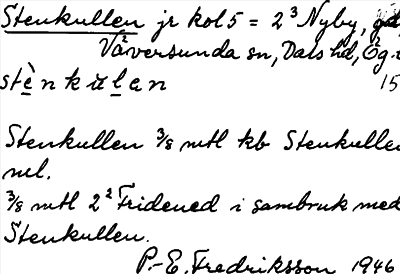 Stenkullen jr kol 5 = 2³ Nyby, gd,
Väversunda sn, Dals hd, Ög.
stènkulen 15
Stenkullen 3/8 mtl kb Stenkullen
ml.
3/8 mtl 2² Fridened i sambruk med
Stenkullen.
P.-E. Fredriksson 1946